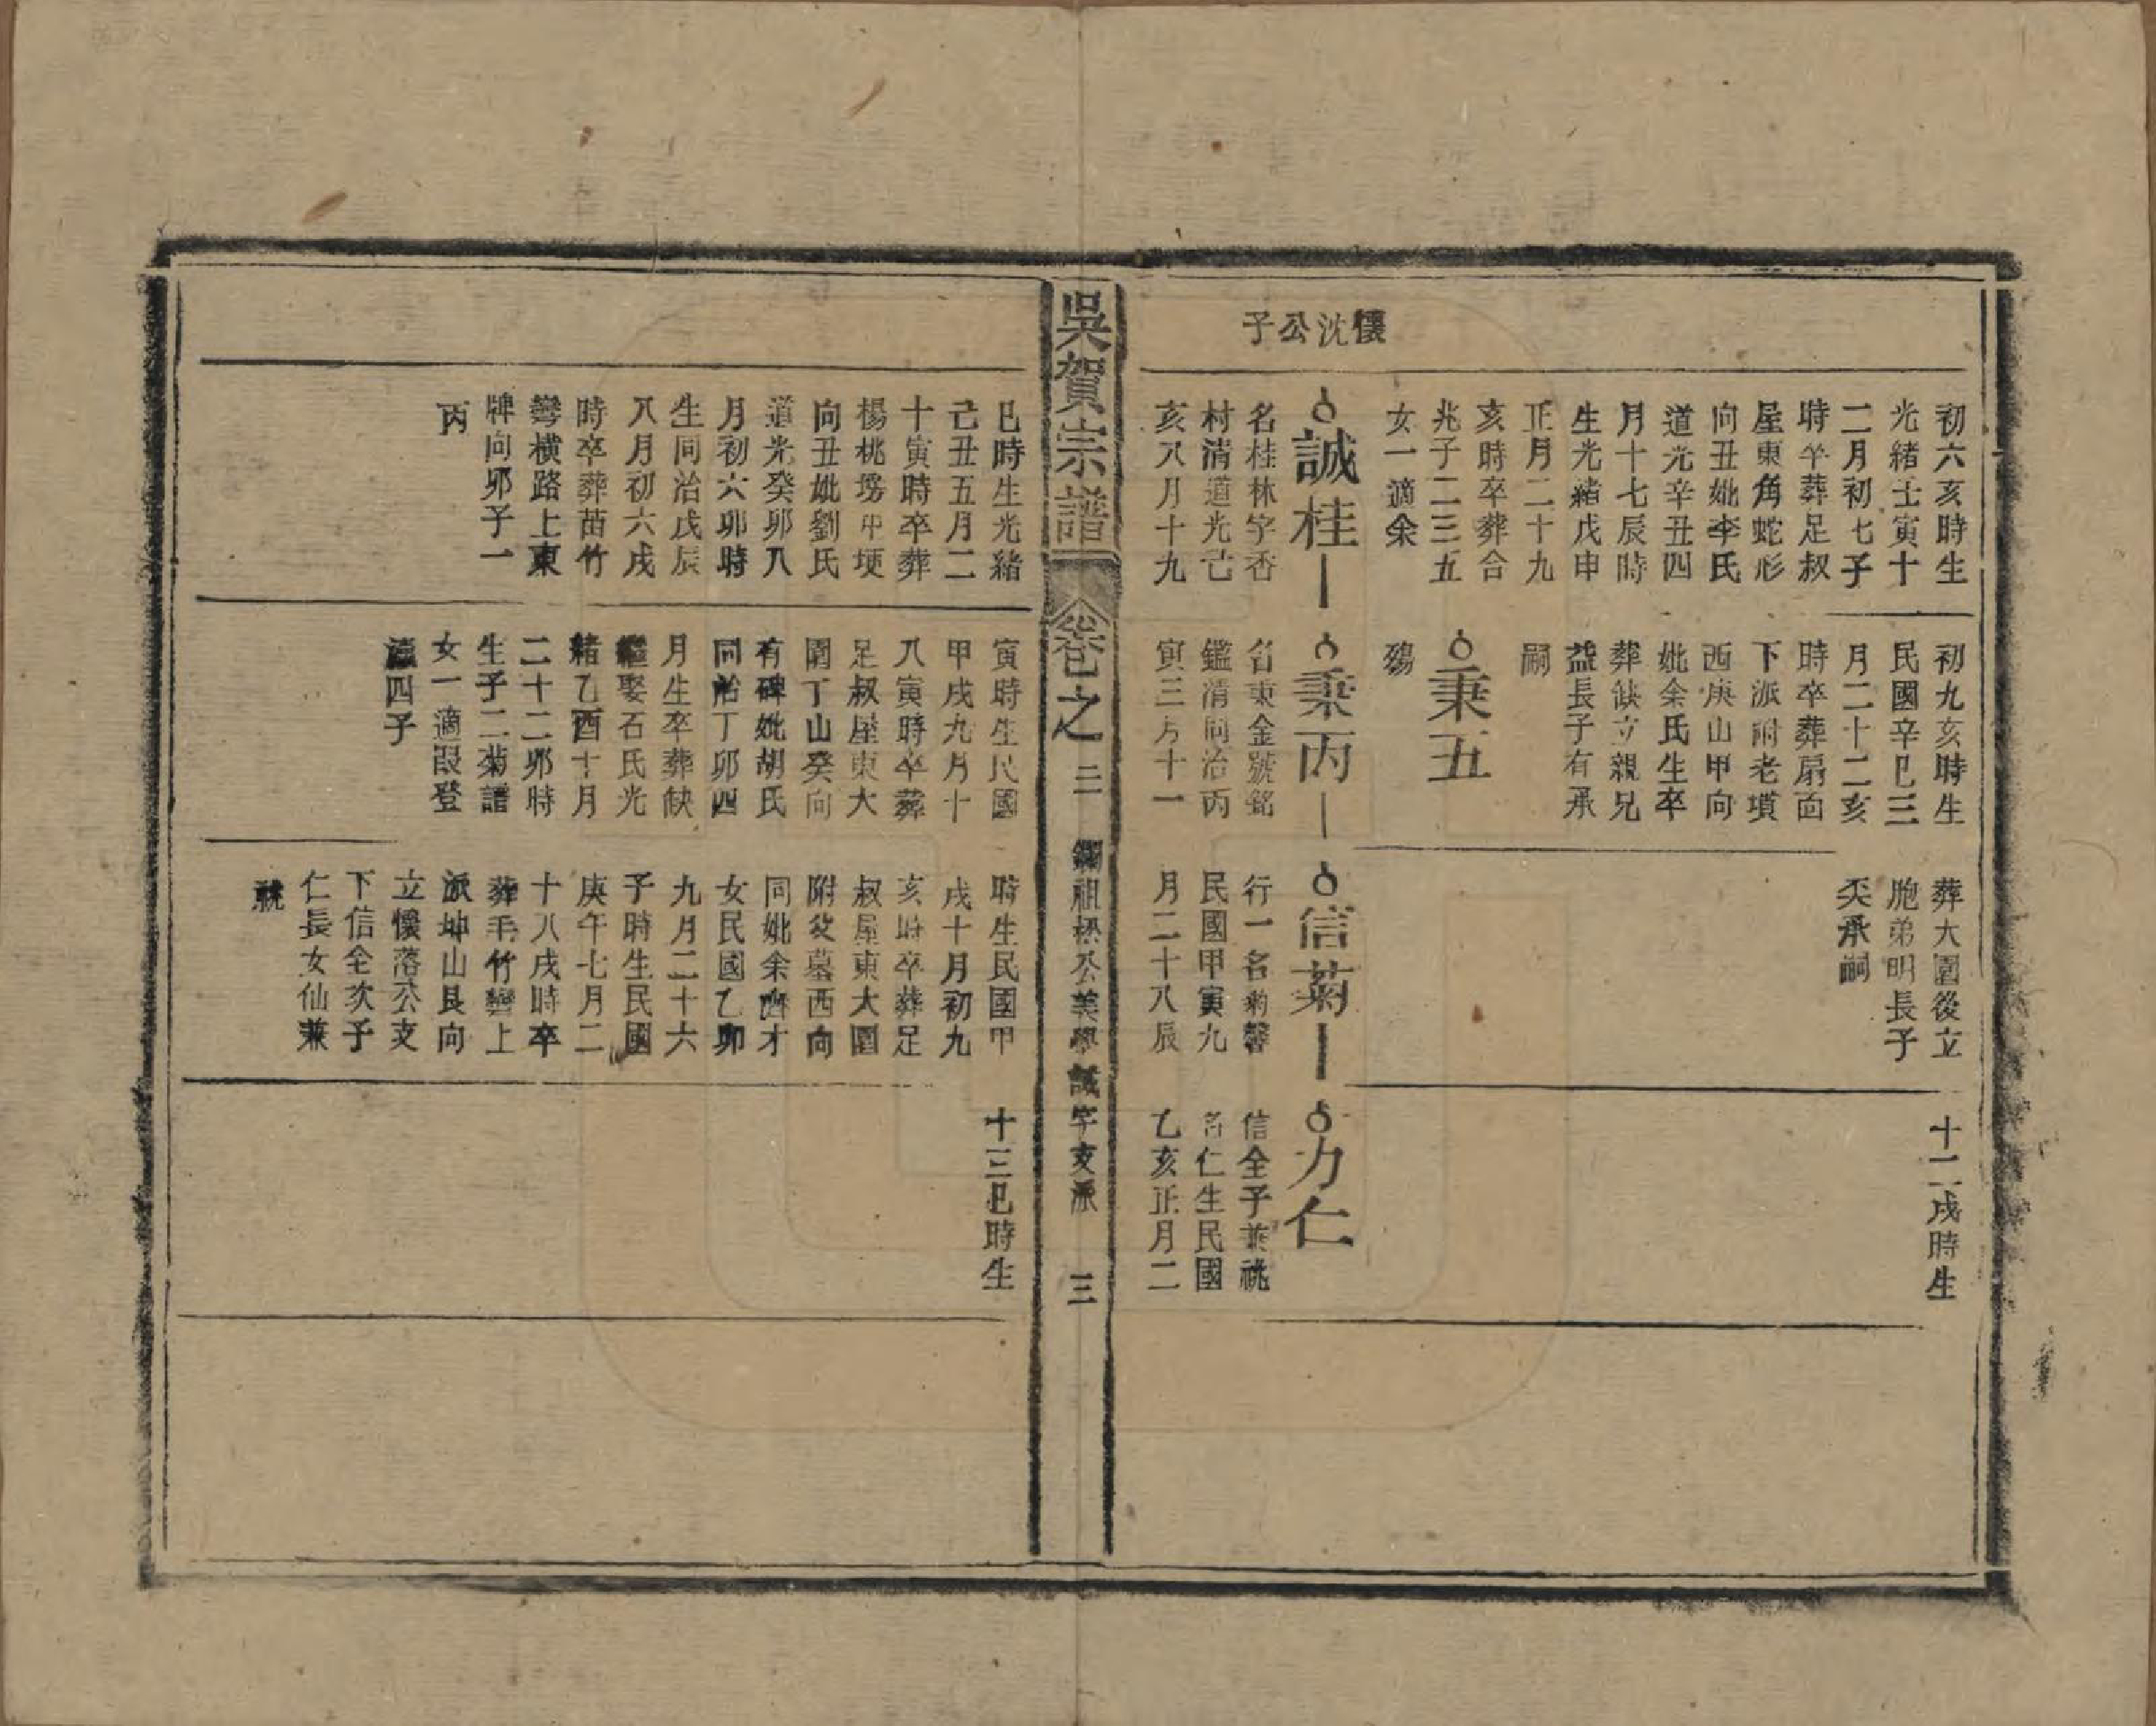 懷沈公子
初六亥時生
光緒壬寅十
二月初七子
時卒葬足叔
屋東角蛇形
向丑妣李氏
道光辛丑四
月十七辰時
生光緒戊申
正月二十九
亥時卒葬合
兆子二三五
女一適余
誠桂
名桂林字香
村清道光己
亥八月十九
初九亥時生
民國辛巳三
月二十二亥
時卒葬扇面
下派附老墳
西庚山甲向
妣余氏生卒
葬缺立親兄
益長子有承
嗣
秉五
殤
秉丙
名東金號銘
鑑清同治丙
寅三月十一
葬大園後立
胞弟明長子
奀承嗣
信菊
行一名菊馨
民國甲寅九
月二十八辰
十二戌時生
力仁
信全子兼祧
名仁生民國
乙亥正月二
吳賀宗譜
卷之二
祖 公美學誠字支派
三
巳時生光緒
己丑五月二
十寅時卒葬
楊桃塝甲埂
向丑妣劉氏
道光癸卯八
月初六卯時
生同治戊辰
八月初六戌
時卒葬苗竹
彎橫路上東
牌向卯子一
丙
寅時生民國
甲戌九月十
八寅時卒葬
足叔屋東大
園丁山癸向
有碑妣胡氏
同治丁卯四
月生卒葬缺
繼娶石氏光
緒乙酉十月
二十二卯時
生子二菊譜
女一適段登
瀛四子
時生民國甲
戌十月初九
亥時卒葬足
叔屋東大園
附父墓西向
同妣余濟才
女民國乙卯
九月二十六
子時生民國
庚午七月二
十八戌時卒
葬毛竹彎上
派坤山艮向
立懷落公支
下信全次子
仁長女仙兼
祧
十三巳時生